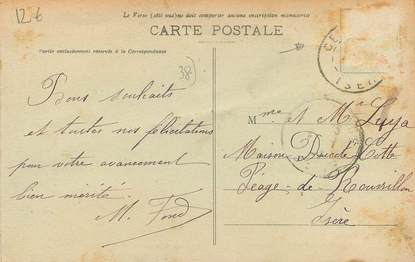 12 €
Le Verso (côté vue) ne doit comporter aucune inscription manuscrite
CARTE POSTALE
Partie exclusivement réservée à la Correspondance
38)
Bons souhaits
et toutes nos félicitations
pour votre avancement
bien mérité.
M. Fond
Mme et Mr
Maison Cotte
Péage-de-Roussillon
Isère
ISE